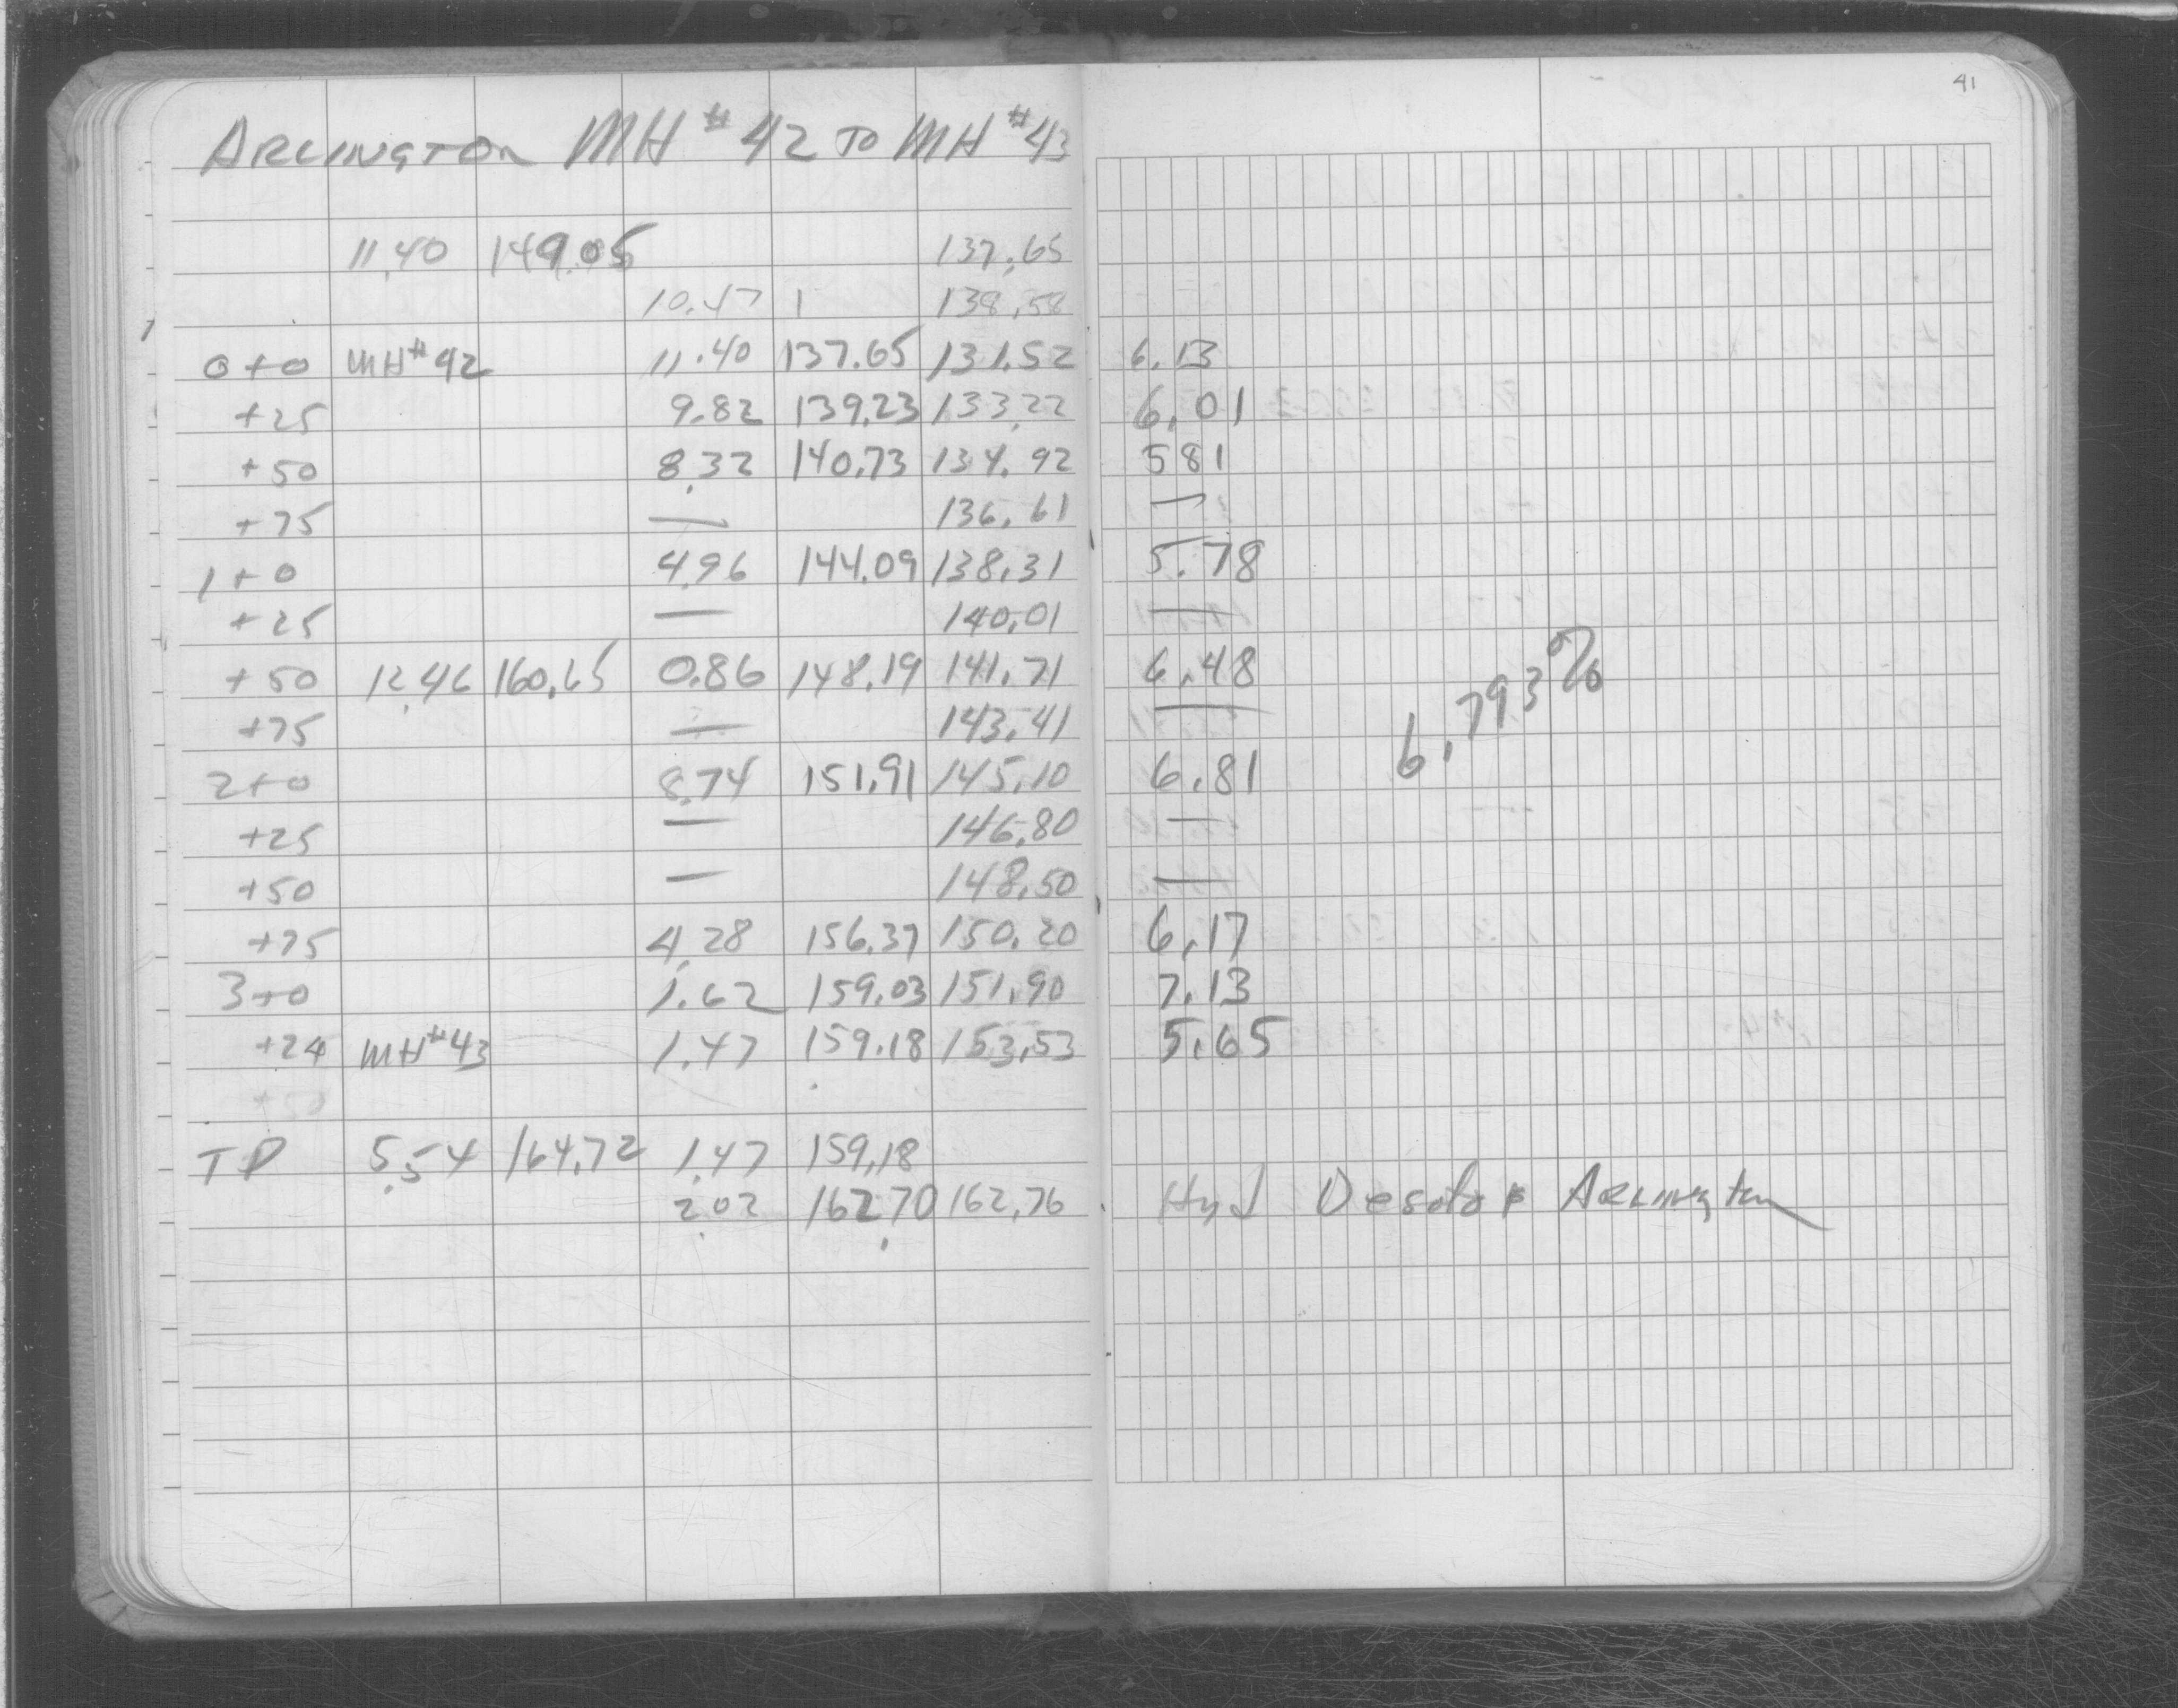 41
ARLINGTON MH #42 TO MH #43
11.40 149.05 137.65
10.47 1 138.58
0+0 MH#42 11.40 137.65 131.52 6.13
+25 9.82 139.23 133.22 6.01
+50 8.32 140.73 134.92 581
+75 — 136.61 —
1+0 4.96 144.09 138.31 5.78
+25 — 140.01 —
+50 12.46 160.65 0.86 148.19 141.71 6.48
+75 — 143.41 —
2+0 8.74 151.91 145.10 6.81
6.793%
+25 — 146.80 —
+50 — 148.50 —
+75 4.28 156.37 150.20 6.17
3+0 1.62 159.03 151.90 7.13
+24 MH#43 1.47 159.18 153.53 5.65
+50
TP 5.54 164.72 1.47 159.18
2.02 162.70 162.76 Hyd Desoto & Arlington